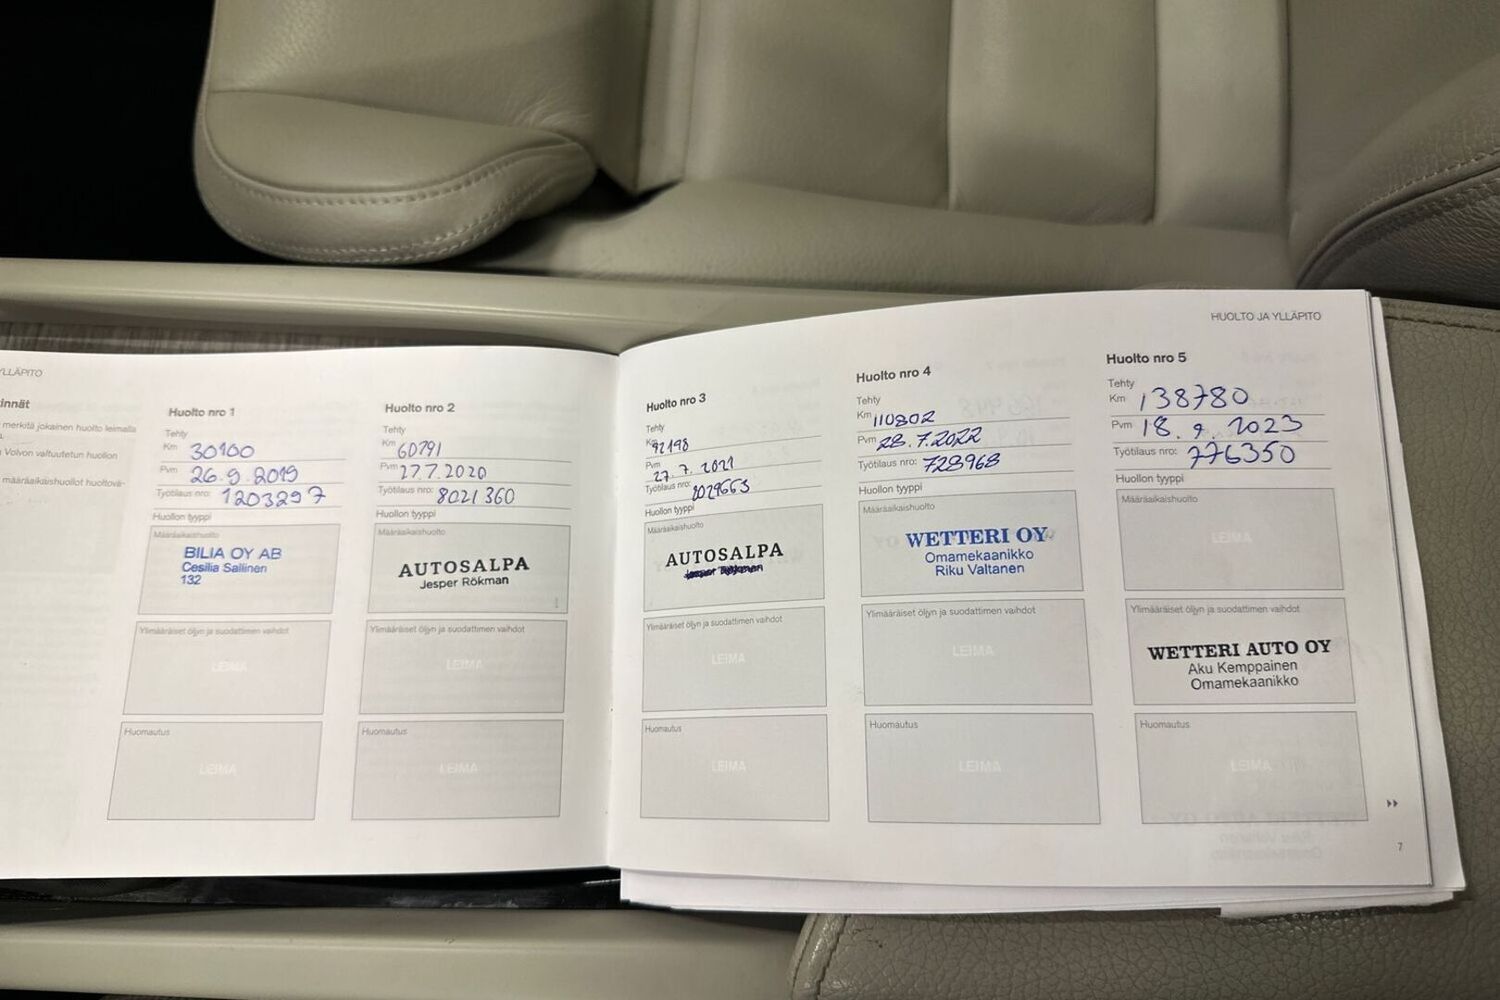 YLLÄPITO
innät
merkitä jokainen huolto leimalla
Volvon valtuutetun huollon
määräaikaishuollot huoltovä-
Huolto nro 1
Tehty
Km 30100
Pvm 26.9.2019
Työtilaus nro: 1203297
Huollon tyyppi
Määräaikaishuolto
BILIA OY AB
Cesilia Sallinen
132
Ylimääräiset öljyn ja suodattimen vaihdot
LEIMA
Huomautus
LEIMA
Huolto nro 2
Tehty
Km 60791
Pvm 27.7.2020
Työtilaus nro: 8021360
Huollon tyyppi
Määräaikaishuolto
AUTOSALPA
Jesper Rökman
Ylimääräiset öljyn ja suodattimen vaihdot
LEIMA
Huomautus
LEIMA
HUOLTO JA YLLÄPITO
Huolto nro 3
Tehty
Km 92198
Pvm 27.7.2021
Työtilaus nro: 8029663
Huollon tyyppi
Määräaikaishuolto
AUTOSALPA
Ylimääräiset öljyn ja suodattimen vaihdot
LEIMA
Huomautus
LEIMA
Huolto nro 4
Tehty
Km 110802
Pvm 28.7.2022
Työtilaus nro: 728968
Huollon tyyppi
Määräaikaishuolto
WETTERI OY
Omamekaanikko
Riku Valtanen
Ylimääräiset öljyn ja suodattimen vaihdot
LEIMA
Huomautus
LEIMA
Huolto nro 5
Tehty
Km 138780
Pvm 18.9.2023
Työtilaus nro: 776350
Huollon tyyppi
Määräaikaishuolto
LEIMA
Ylimääräiset öljyn ja suodattimen vaihdot
WETTERI AUTO OY
Aku Kemppainen
Omamekaanikko
Huomautus
LEIMA
7